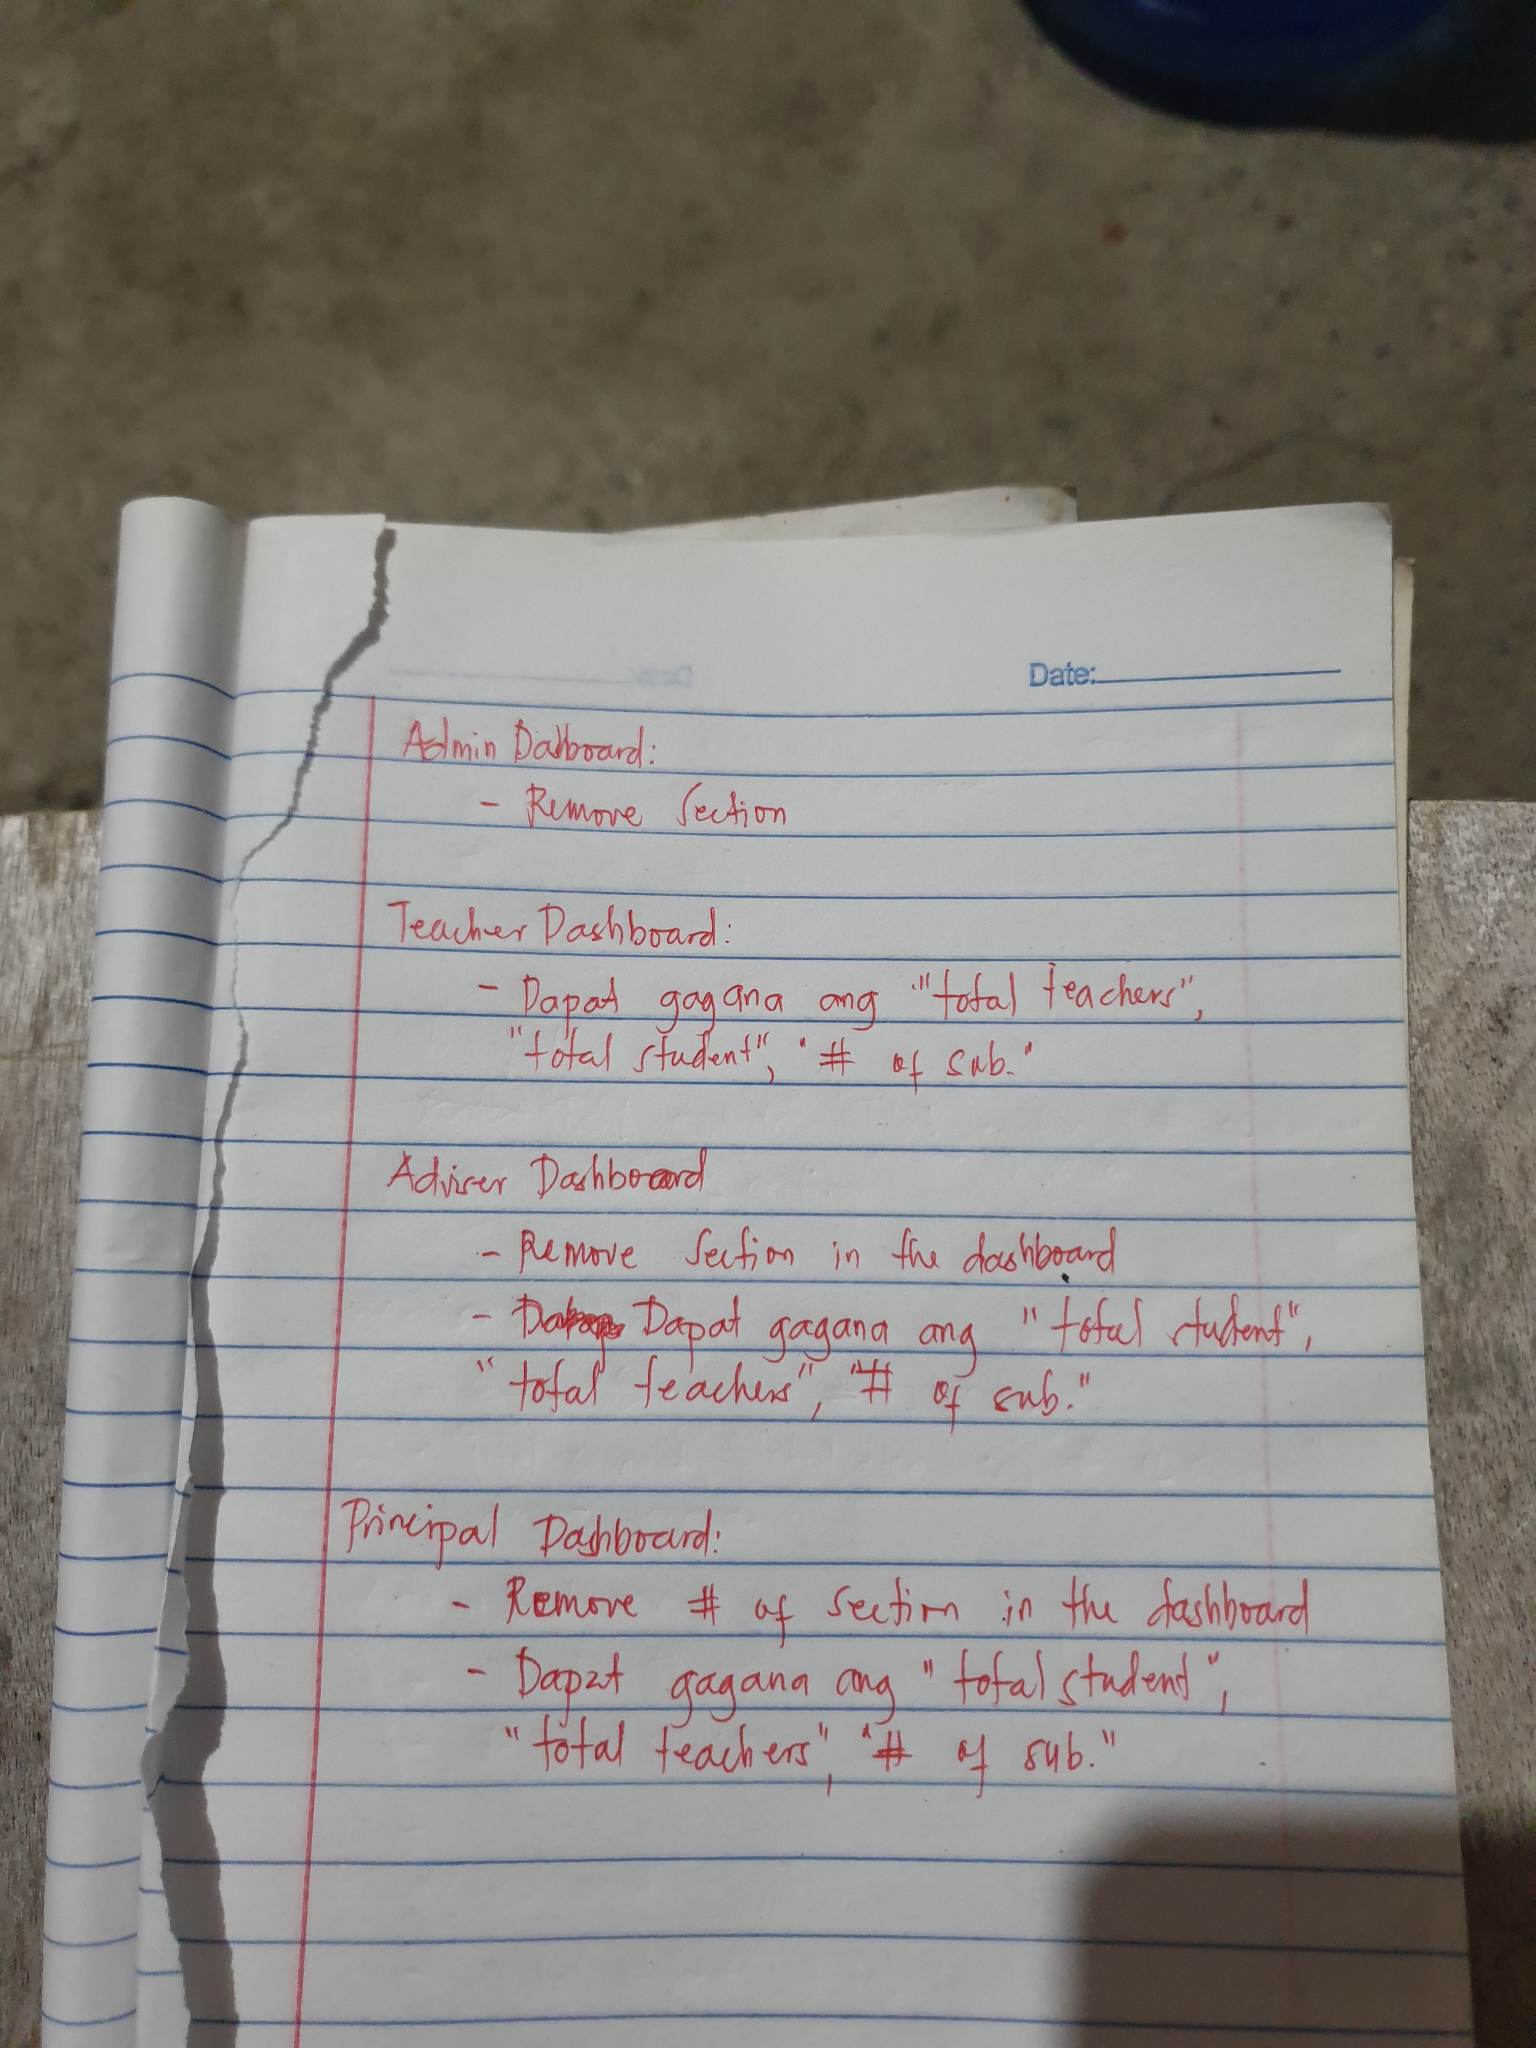 Date:
Admin Dashboard:
- Remove Section
Teacher Dashboard:
- Dapat gagana ang "total teachers",
"total student", "# of sub."
Adviser Dashboard
- Remove Section in the dashboard
- Dapat gagana ang "total student",
"total teachers", "# of sub."
Principal Dashboard:
- Remove # of section in the dashboard
- Dapat gagana ang "total student",
"total teachers", "# of sub."